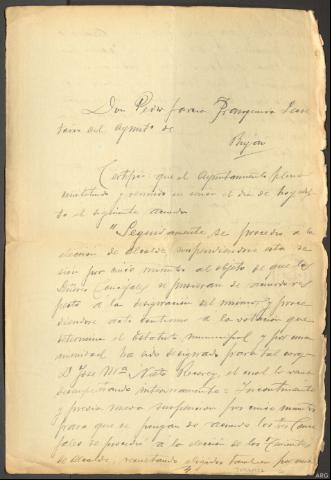 Don Pedro García Secre
tario del Ayunto de
Certifico: que el Ayuntamiento pleno
constituido y reunido en sesión el día de hoy adop
tó el siguiente acuerdo
"Seguidamente se procedió a la
elección de Alcalde suspendiéndose esta se
sión por cinco minutos al objeto de que los
Señores Concejales se pusieran de acuerdo res
pecto a la designación del mismo; y proce
diéndose acto continuo a la votación que
determina el Estatuto municipal y por una
nimidad ha sido designado para tal cargo
D. Jose Mª Nieto el cual lo venía
desempeñando interinamente = Incontinente
y previa nueva suspensión por cinco minutos
para que se pongan de acuerdo los Srs Conce
jales se procedió a la elección de los Tenientes
de Alcalde, resultando elegidos también por una
ARG